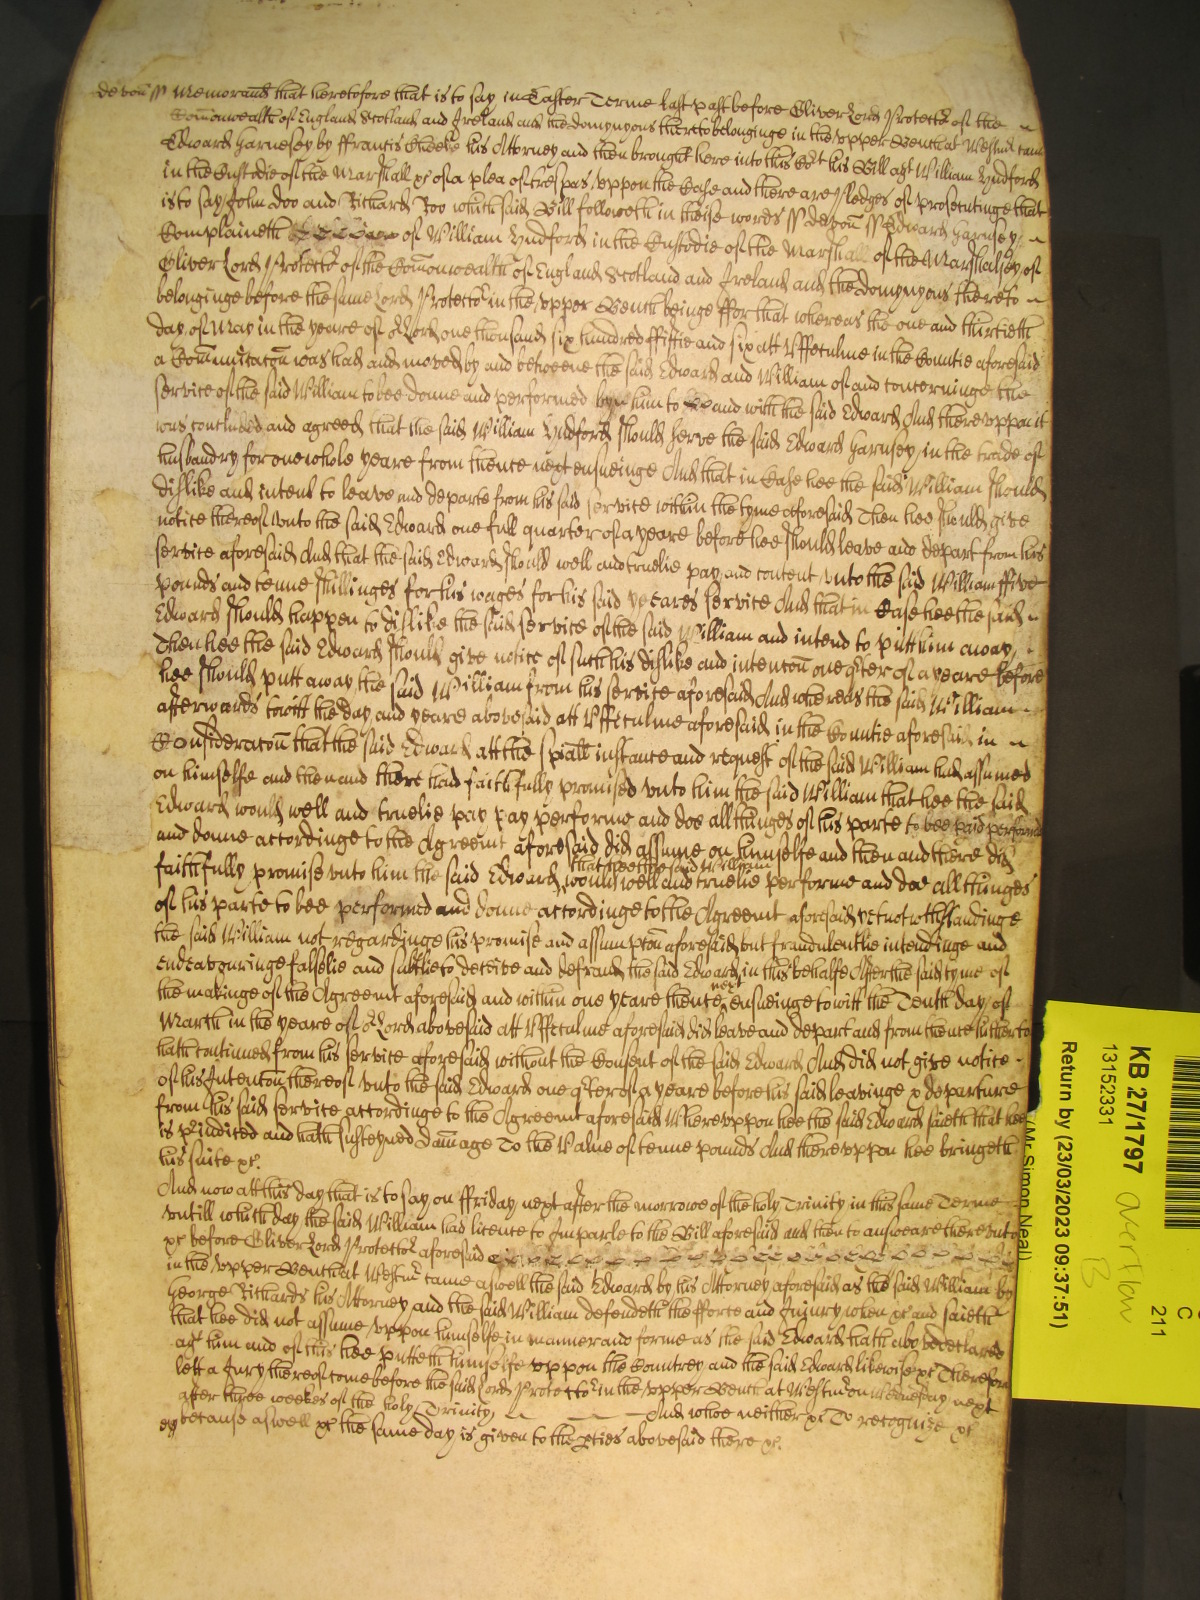 Devon ss Memorand that heretofore that is to say in Easter Terme last past before Oliver Lord Protector of the
Comonwealth of England Scotland and Ireland and the domynyons thereto belonginge in the vpper Bench at Westm came
Edward Garnesey by ffrancis his Attorney and then brought here into this Cort his Bill agt William Lyndford
in the Custodie of the Marshall &c of a plea of trespas vppon the Case and there are Pledges of prosecutinge that
is to say John Doo and Richard Roo which said Bill followeth in theise words ss Devon ss Edward Garnsey
Complaineth of William Lyndford in the Custodie of the Marshall of the Marshalsey of
Oliver Lord Protector of the Comonwealth of England Scotland and Ireland and the domynyons thereto
belonginge before the same Lord Protector in the vpper Bench beinge ffor that whereas the one and thirtieth
day of May in the yeare of or Lord one thousand six hundred ffiftie and six att Vffculme in the Countie aforesaid
a Communicacon was had and moved by and betweene the said Edward and William of and concerninge the
service of the said William to bee donne and performed by him to and with the said Edward And therevppon it
was concluded and agreed that the said William Lyndford should serve the said Edward Garnsey in the trade of
husbandry for one whole yeare from thence next ensueinge And that in Case hee the said William should
dislike and intend to leave and departe from his said service within the tyme aforesaid Then hee should give
notice thereof vnto the said Edward one full quarter of a yeare before hee should leave and depart from his
service aforesaid And that the said Edward should well and truelie pay and content vnto the said William ffive
pounds and tenne shillinges for his wages for his said yeares service And that in Case hee the said
Edward should happen to dislike the said service of the said William and intend to putt him away
Then hee the said Edward should give notice of such his dislike and intencon one qrter of a yeare before
hee should putt away the said William from his service aforesaid And whereas the said William
afterwards towitt the day and yeare abovesaid att Vffculme aforesaid in the Countie aforesaid in
Consideracon that the said Edward att the spiall instance and request of the said William had assumed
on himselfe and then and there had faithfully promised vnto him the said William that hee the said
Edward would well and truelie pay pay performe and doe all thinges of his parte to bee paid performed
and donne accordinge to the Agreemt aforesaid did assume on himselfe and then and there did
faithfully promise vnto him the said Edward that hee the said William would well and truelie performe and doe all thinges
of his parte to bee performed and donne accordinge to the Agreemt aforesaid yet notwthstandinge
the said William not regardinge his promise and assumpcon aforesaid but fraudulentlie intendinge and
endeavouringe falslie and subtlie to deceive and defraud the said Edward in this behalfe After the said tyme of
the makinge of the Agreemt aforesaid and within one yeare thence next ensueinge towitt the Tenth day of
March in the yeare of or Lord abovesaid att Vffculme aforesaid did leave and depart and from thence hitherto
hath continued from his service aforesaid without the Consent of the said Edward And did not give notice
of his Intencon thereof vnto the said Edward one qrter of a yeare before his said leavinge & departure
from his said service accordinge to the Agreemt aforesaid Wherevppon hee the said Edward saieth that hee
is priudiced and hath susteyned damage To the Value of tenne pounds And therevppon hee bringeth
his suite &c.
And now att this day that is to say on ffriday next after the morrowe of the holy Trinity in this same Terme
vntill which day the said William had licence to Imparle to the Bill aforesaid and then to answeare therevnto
&c before Oliver Lord Protector aforesaid
in the vpper Bench at Westmr came aswell the said Edward by his Attorney aforesaid as the said William by
George Richards his Attorney and the said William defendeth the fforce and Injury when &c and saieth
that hee did not assume vppon himselfe in manner and forme as the said Edward hath above declared
agt him and of this hee putteth himselfe vppon the Countrey and the said Edward likewise &c Therefore
lett a Jury thereof come before the said Lord Protector in the vpper Bench at Westmr on Wensday next
after three weekes of the holy Trinity And whoe neither &c To recognize &c
because aswell &c the same day is given to the pties abovesaid there &c.
KB 27/1797
13152331
Return by (23/03/2023 09:37:51)
(Mr Simon Neal)
Overflow
B
C
211